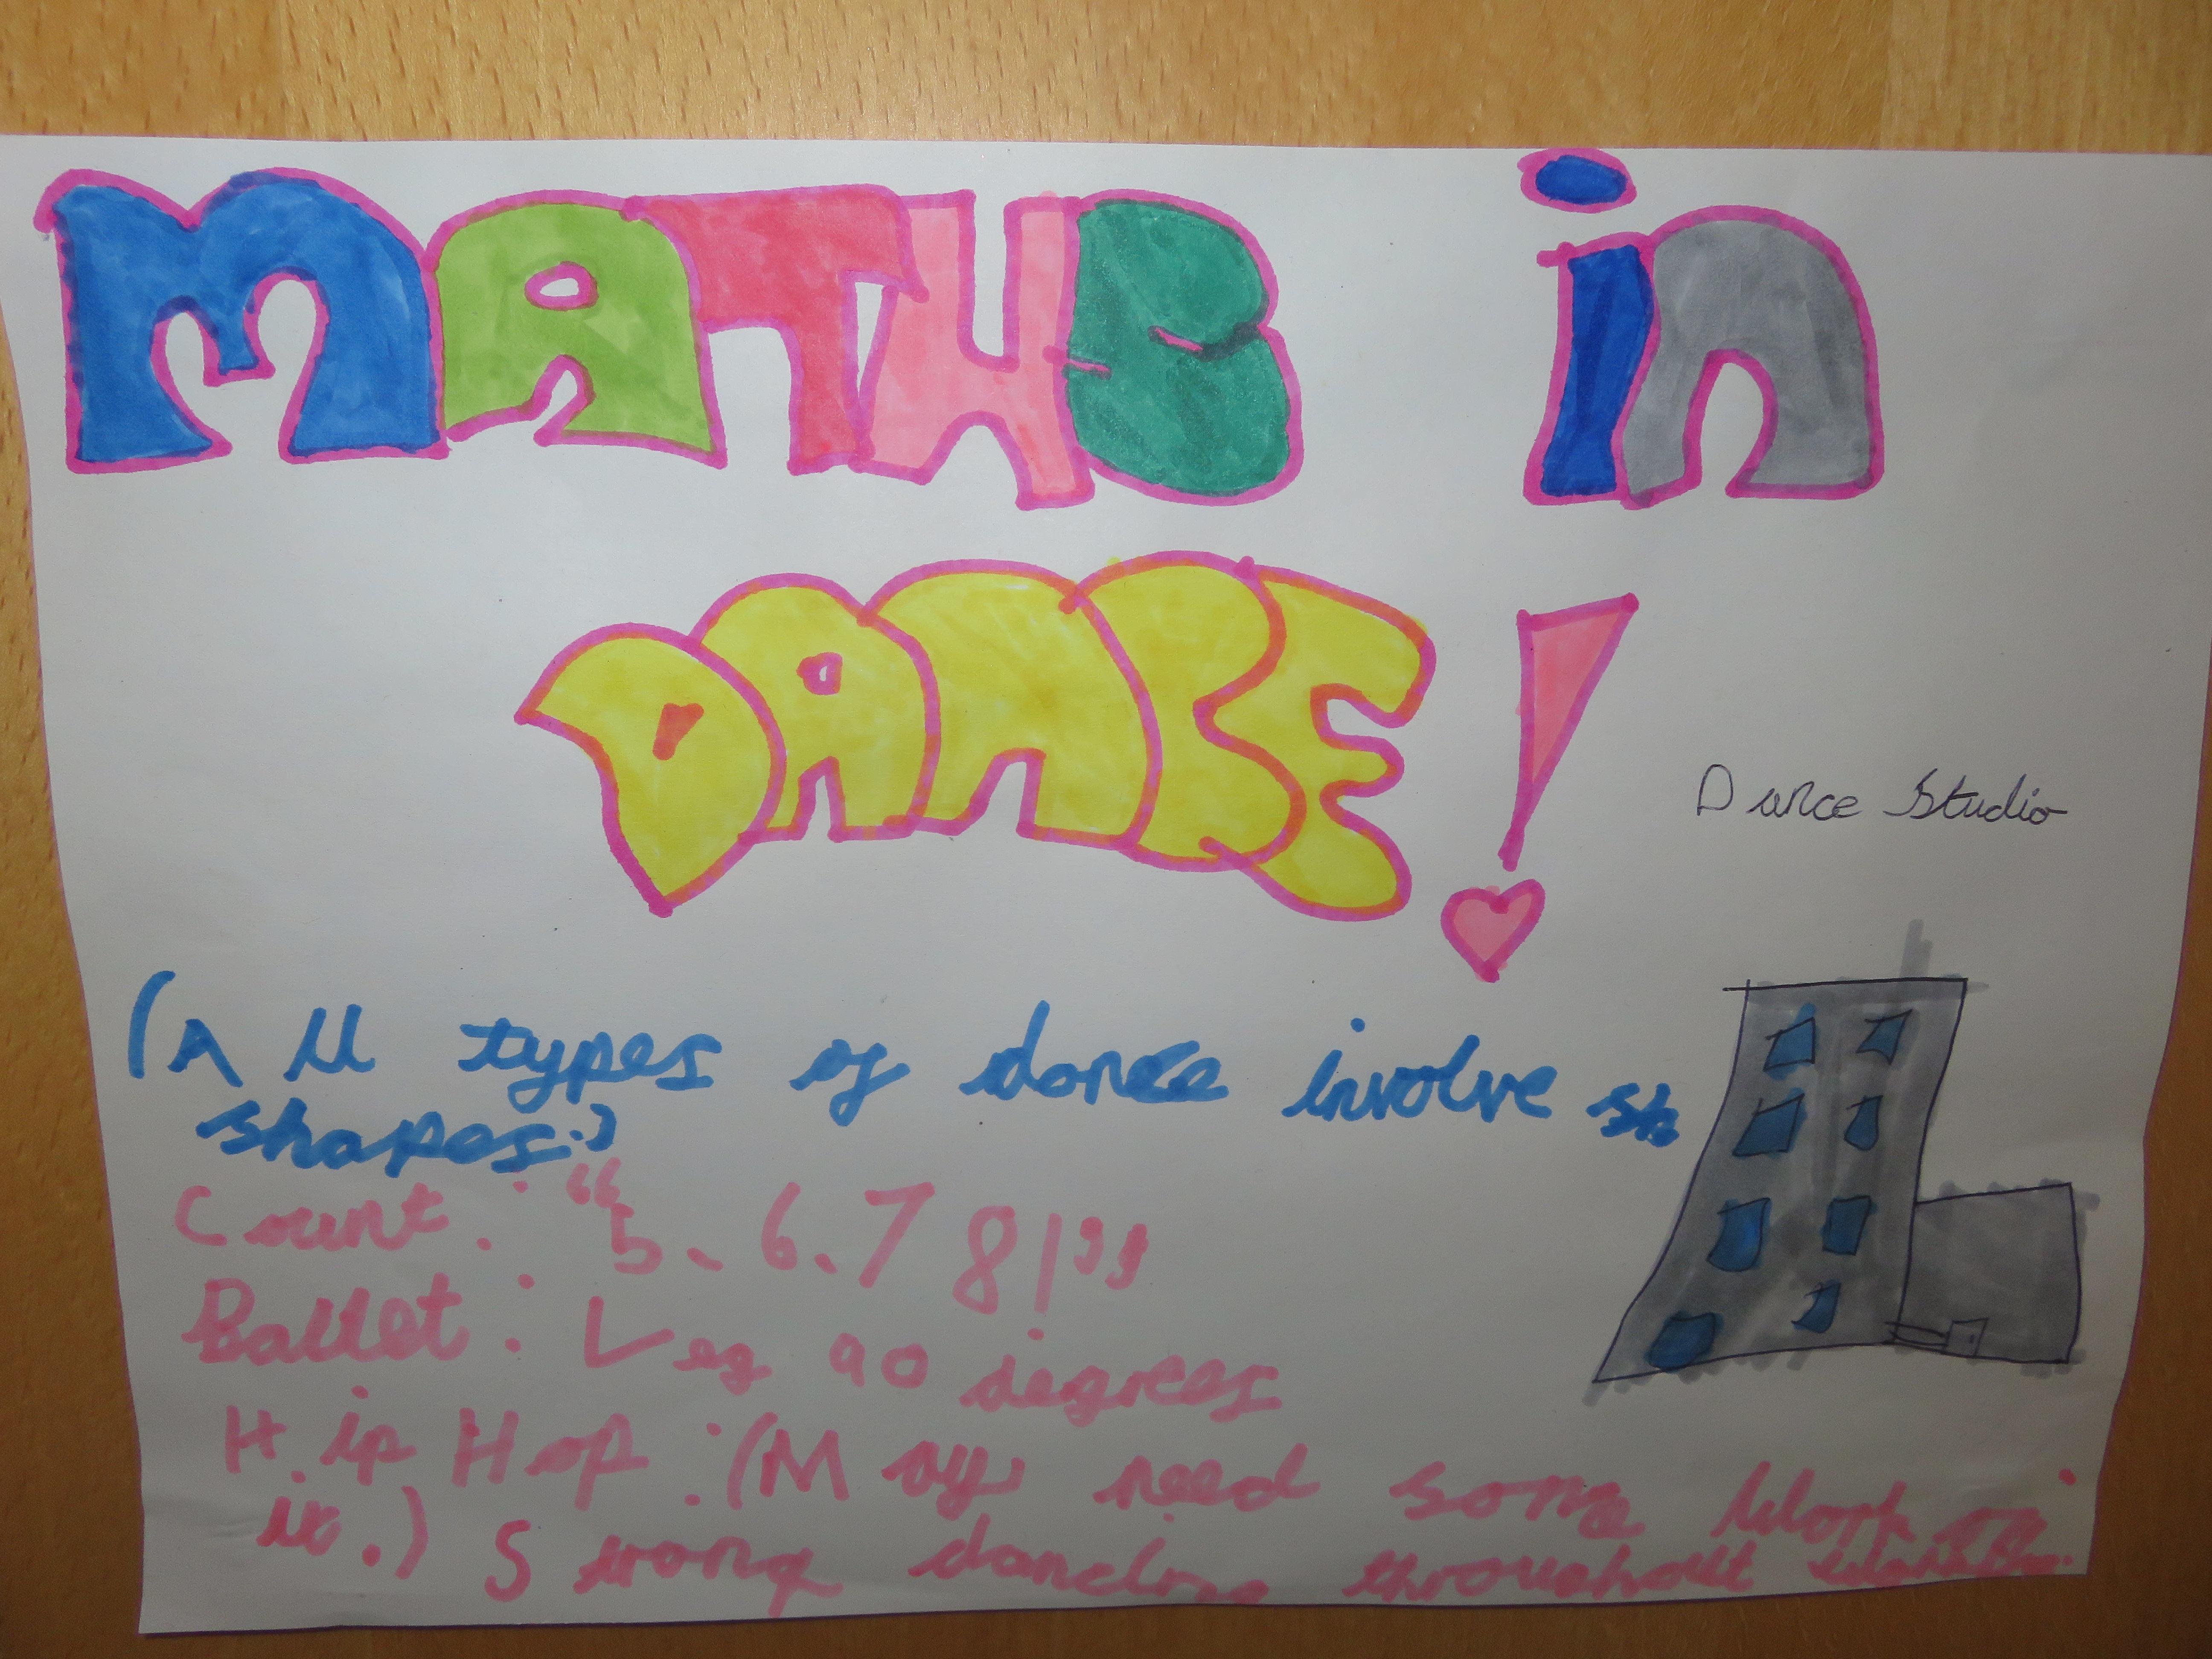 MATHS in
DANCE!
Dance Studio
(All types of dance involve sh
shapes.)
Count: "5, 6, 7 8!"
Ballet: Leg 90 degrees
Hip Hop: (May need some work on
it.) Strong dancing throughout